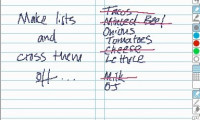 Make lists
and
cross them
off...
Tacos
Minced Beef
Onions
Tomatoes
Cheese
Lettuce
Milk
OJ